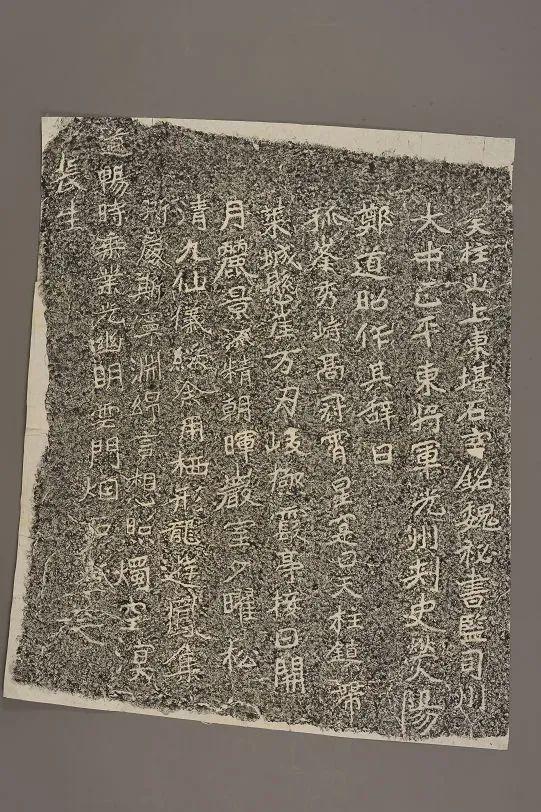 天柱山上東堪石室銘魏祕書監司州
大中正平東將軍光州刺史熒陽
鄭道昭作其辭曰
孤峯秀峙高冠霄星寔曰天柱鎮帶
萊城縣崖万刃峻極霞亭接日開
月麗景流精朝暉巖室夕曜松
清九仙儀綵余用栖形龍遊鳳集
斯處斯寧淵綿言想照燭空溟
道暢時乘業光幽明雲門烟石登之
長生